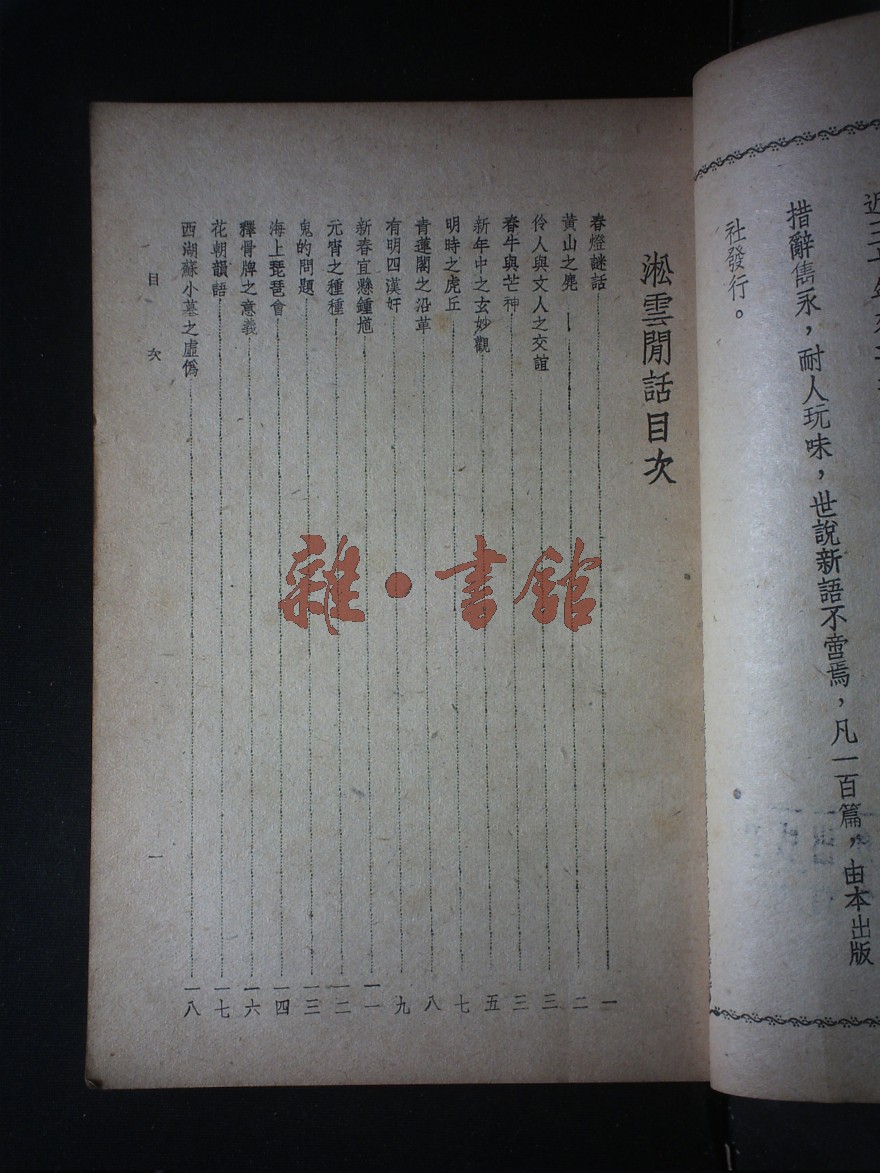 措辭雋永，耐人玩味，世說新語不啻焉，凡一百篇，由本出版
社發行。
淞雲閒話目次
春燈謎話 一
黃山之麂 二
伶人與文人之交誼 三
春牛與芒神 三
新年中之玄妙觀 五
明時之虎丘 七
青蓮閣之沿革 八
有明四漢奸 九
新春宜懸鍾馗 一一
元宵之種種 一二
鬼的問題 一三
海上琵琶會 一四
釋骨牌之意義 一六
花朝韻語 一七
西湖蘇小墓之虛僞 一八
目次 一
雜·書館